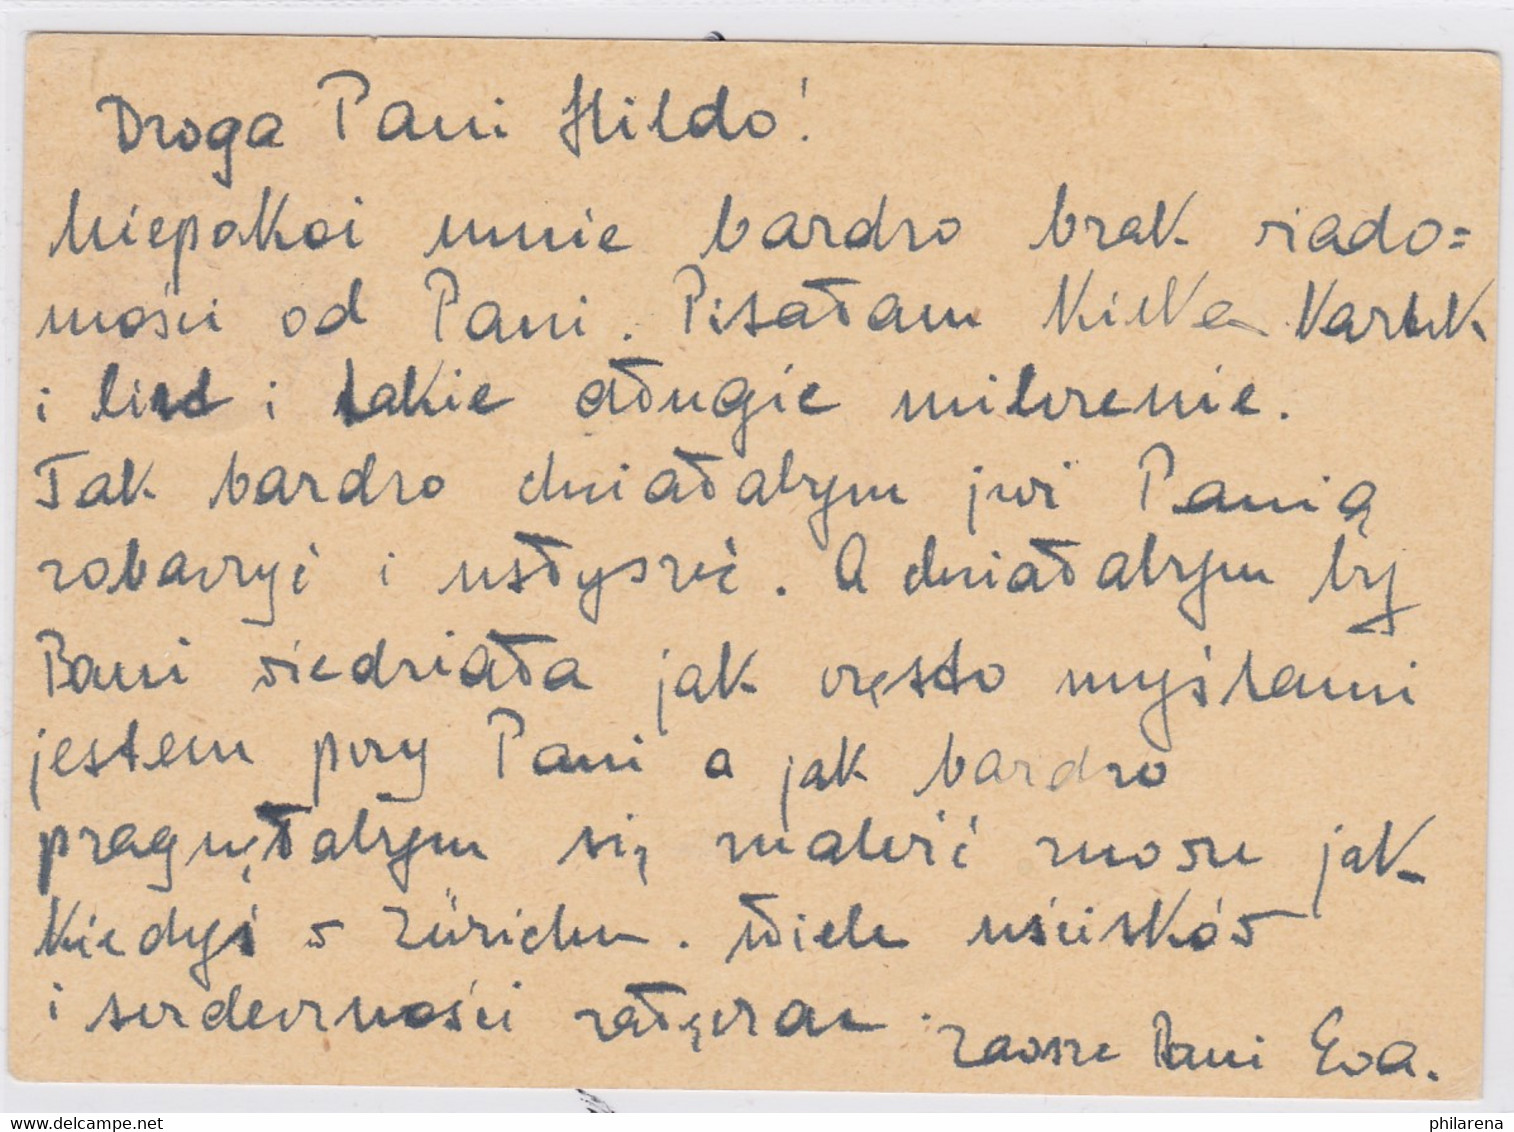 Droga Pani Hildo!
Niepokoi mnie bardzo brak wiado=
mości od Pani. Pisałam kilka kartek
i list i takie długie milczenie.
Tak bardzo chciałabym już Panią
zobaczyć i usłyszeć. A chciałabym by
Pani wiedziała jak często myślami
jestem przy Pani a jak bardzo
pragnęłabym się znaleźć znowu jak
kiedyś w Zürichu. Wiele uścisków
i serdeczności załączam.
Zawsze Pani Ewa.
delcampe.net
philarena